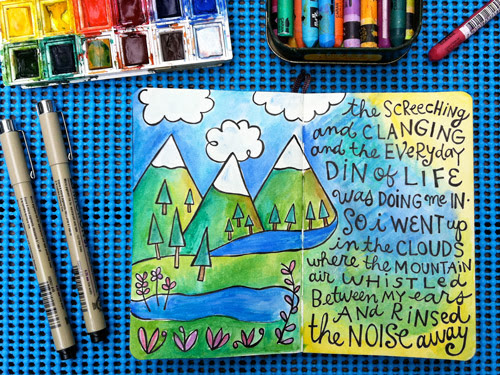 the SCREECHING
and CLANGING
and the EVERYDAY
DIN of LIFE
was DOING me IN.
SO i WENT up
in the CLOUDS
where the MOUNTAIN
air WHISTLED
Between MY ears
AND RINSED
the NOISE away